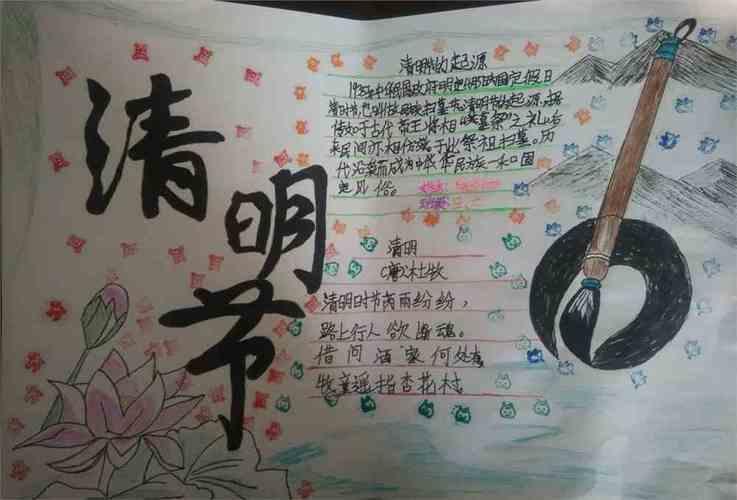 清明节
清明节的起源
1935年中华民国政府明定国定假日
清明节,也叫做民族扫墓节。清明节的起源,据
传始于古代帝王将相“墓祭”之礼,后
来民间亦相仿效于此祭祖扫墓。历
代沿袭而成为中华民族一种固
定风俗。
姓名:
班级:
清明
(唐)杜牧
清明时节雨纷纷,
路上行人欲断魂。
借问酒家何处有
牧童遥指杏花村